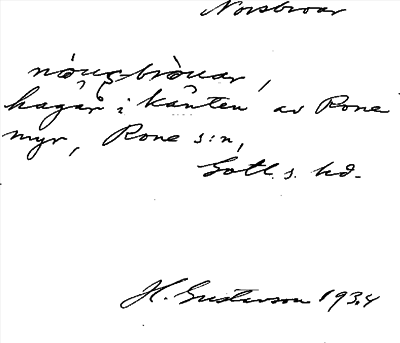 Norsbroar
nòusbròuar,
hagar i kanten av Rone
myr, Rone s:n,
Gotl. s. hd.
H. Gustavson 1934